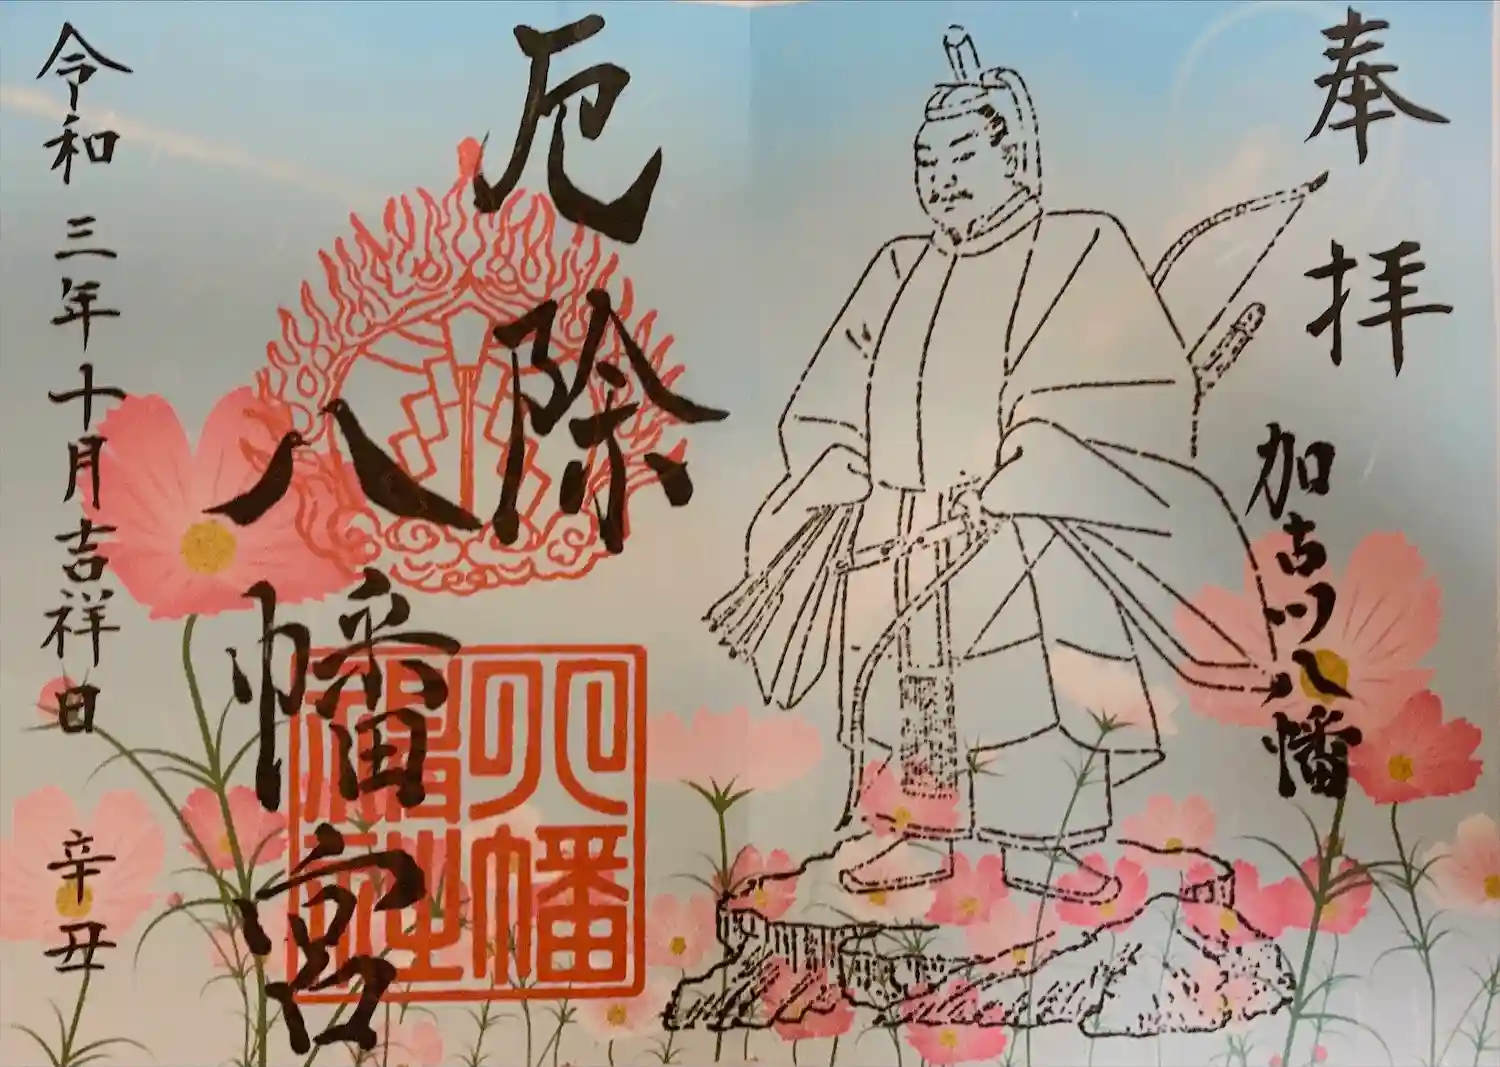 奉拝
加古川八幡
厄除
八幡宮
八幡
福社
令和三年十月吉祥日
辛丑